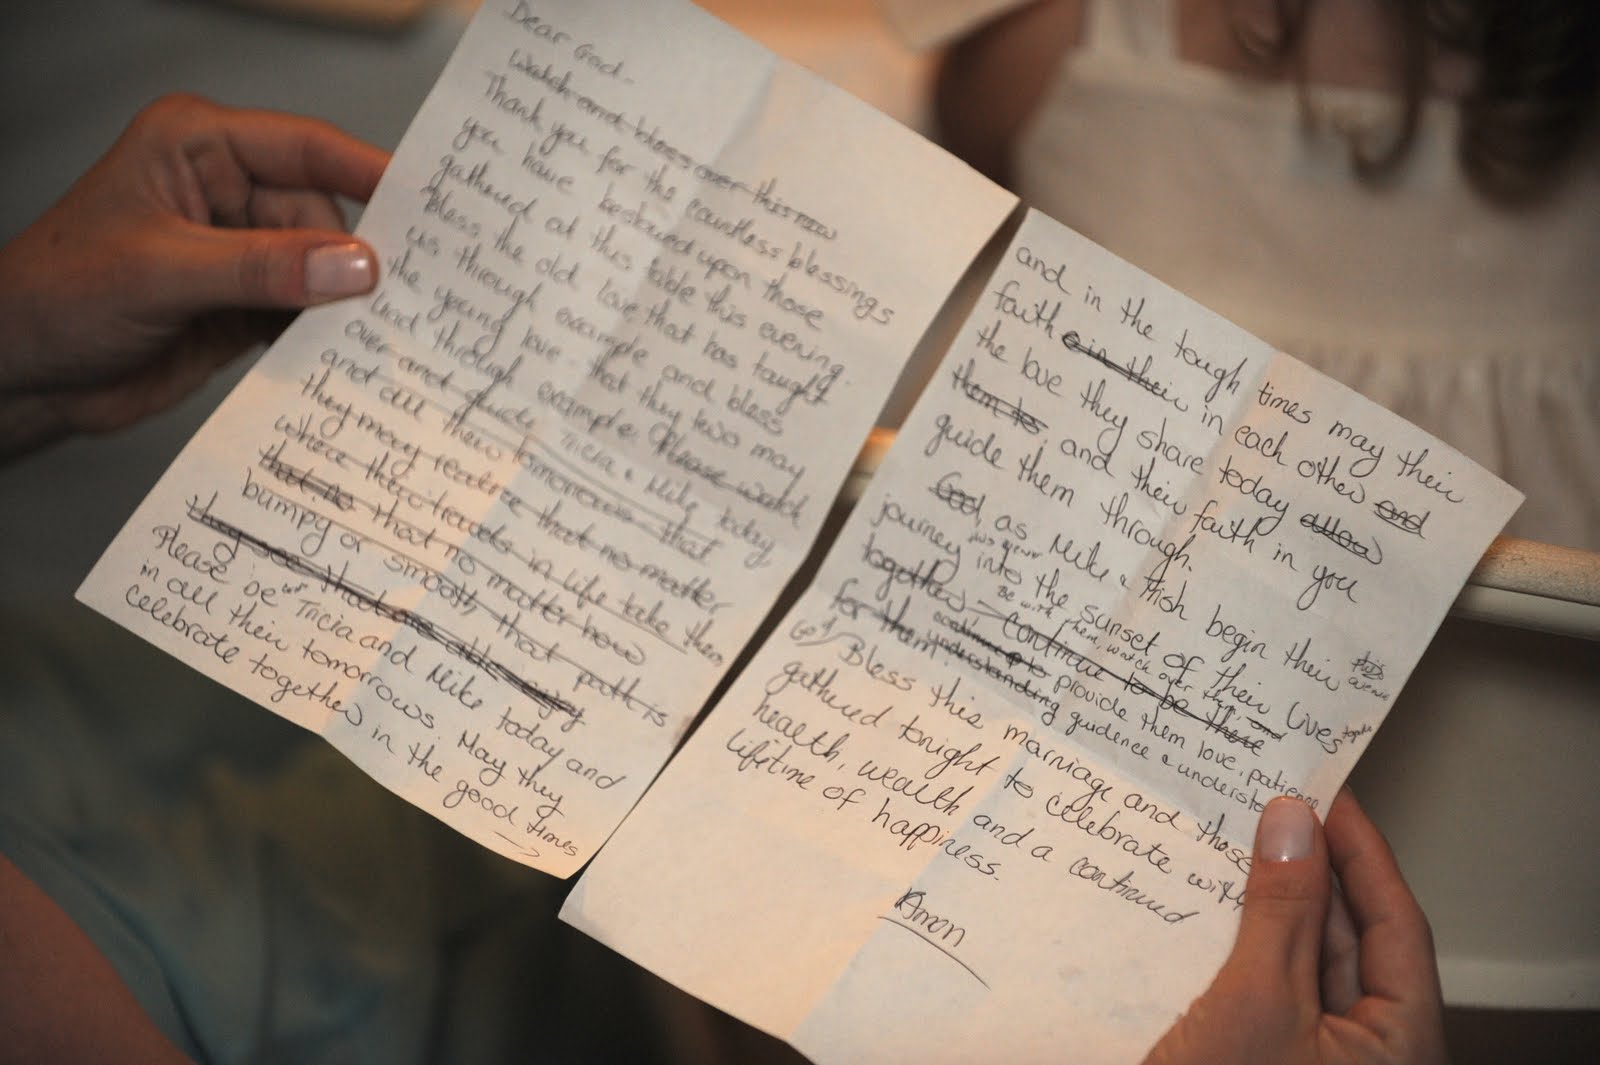 Dear God-
Watch and bless over this new
Thank you for the countless blessings
you have bestowed upon those
gathered at this table this evening.
Bless the old love that has taught
us through example and bless
the young love - that they two may
lead through example. Please watch
over and guide Tricia & Mike today
and all their tomorrows that
they may realize that no matter
where their travels in life take them
that no that no matter how
bumpy or smooth, that path is
they see that are able enjoy
Please be w/ Tricia and Mike today and
in all their tomorrows. May they
celebrate together in the good times
and in the tough times may their
faith in their in each other and
the love they share today allow
them to, and their faith in you
guide them through.
God, as Mike & Trish begin their this
journey into the sunset of their lives together
together, continue to be there
Be with them, watch over them, and
for them. continue to provide them love, patience
understanding guidence &
Bless this marriage and those
gathered tonight to celebrate with
health, wealth and a continued
lifetime of happiness.
Amen